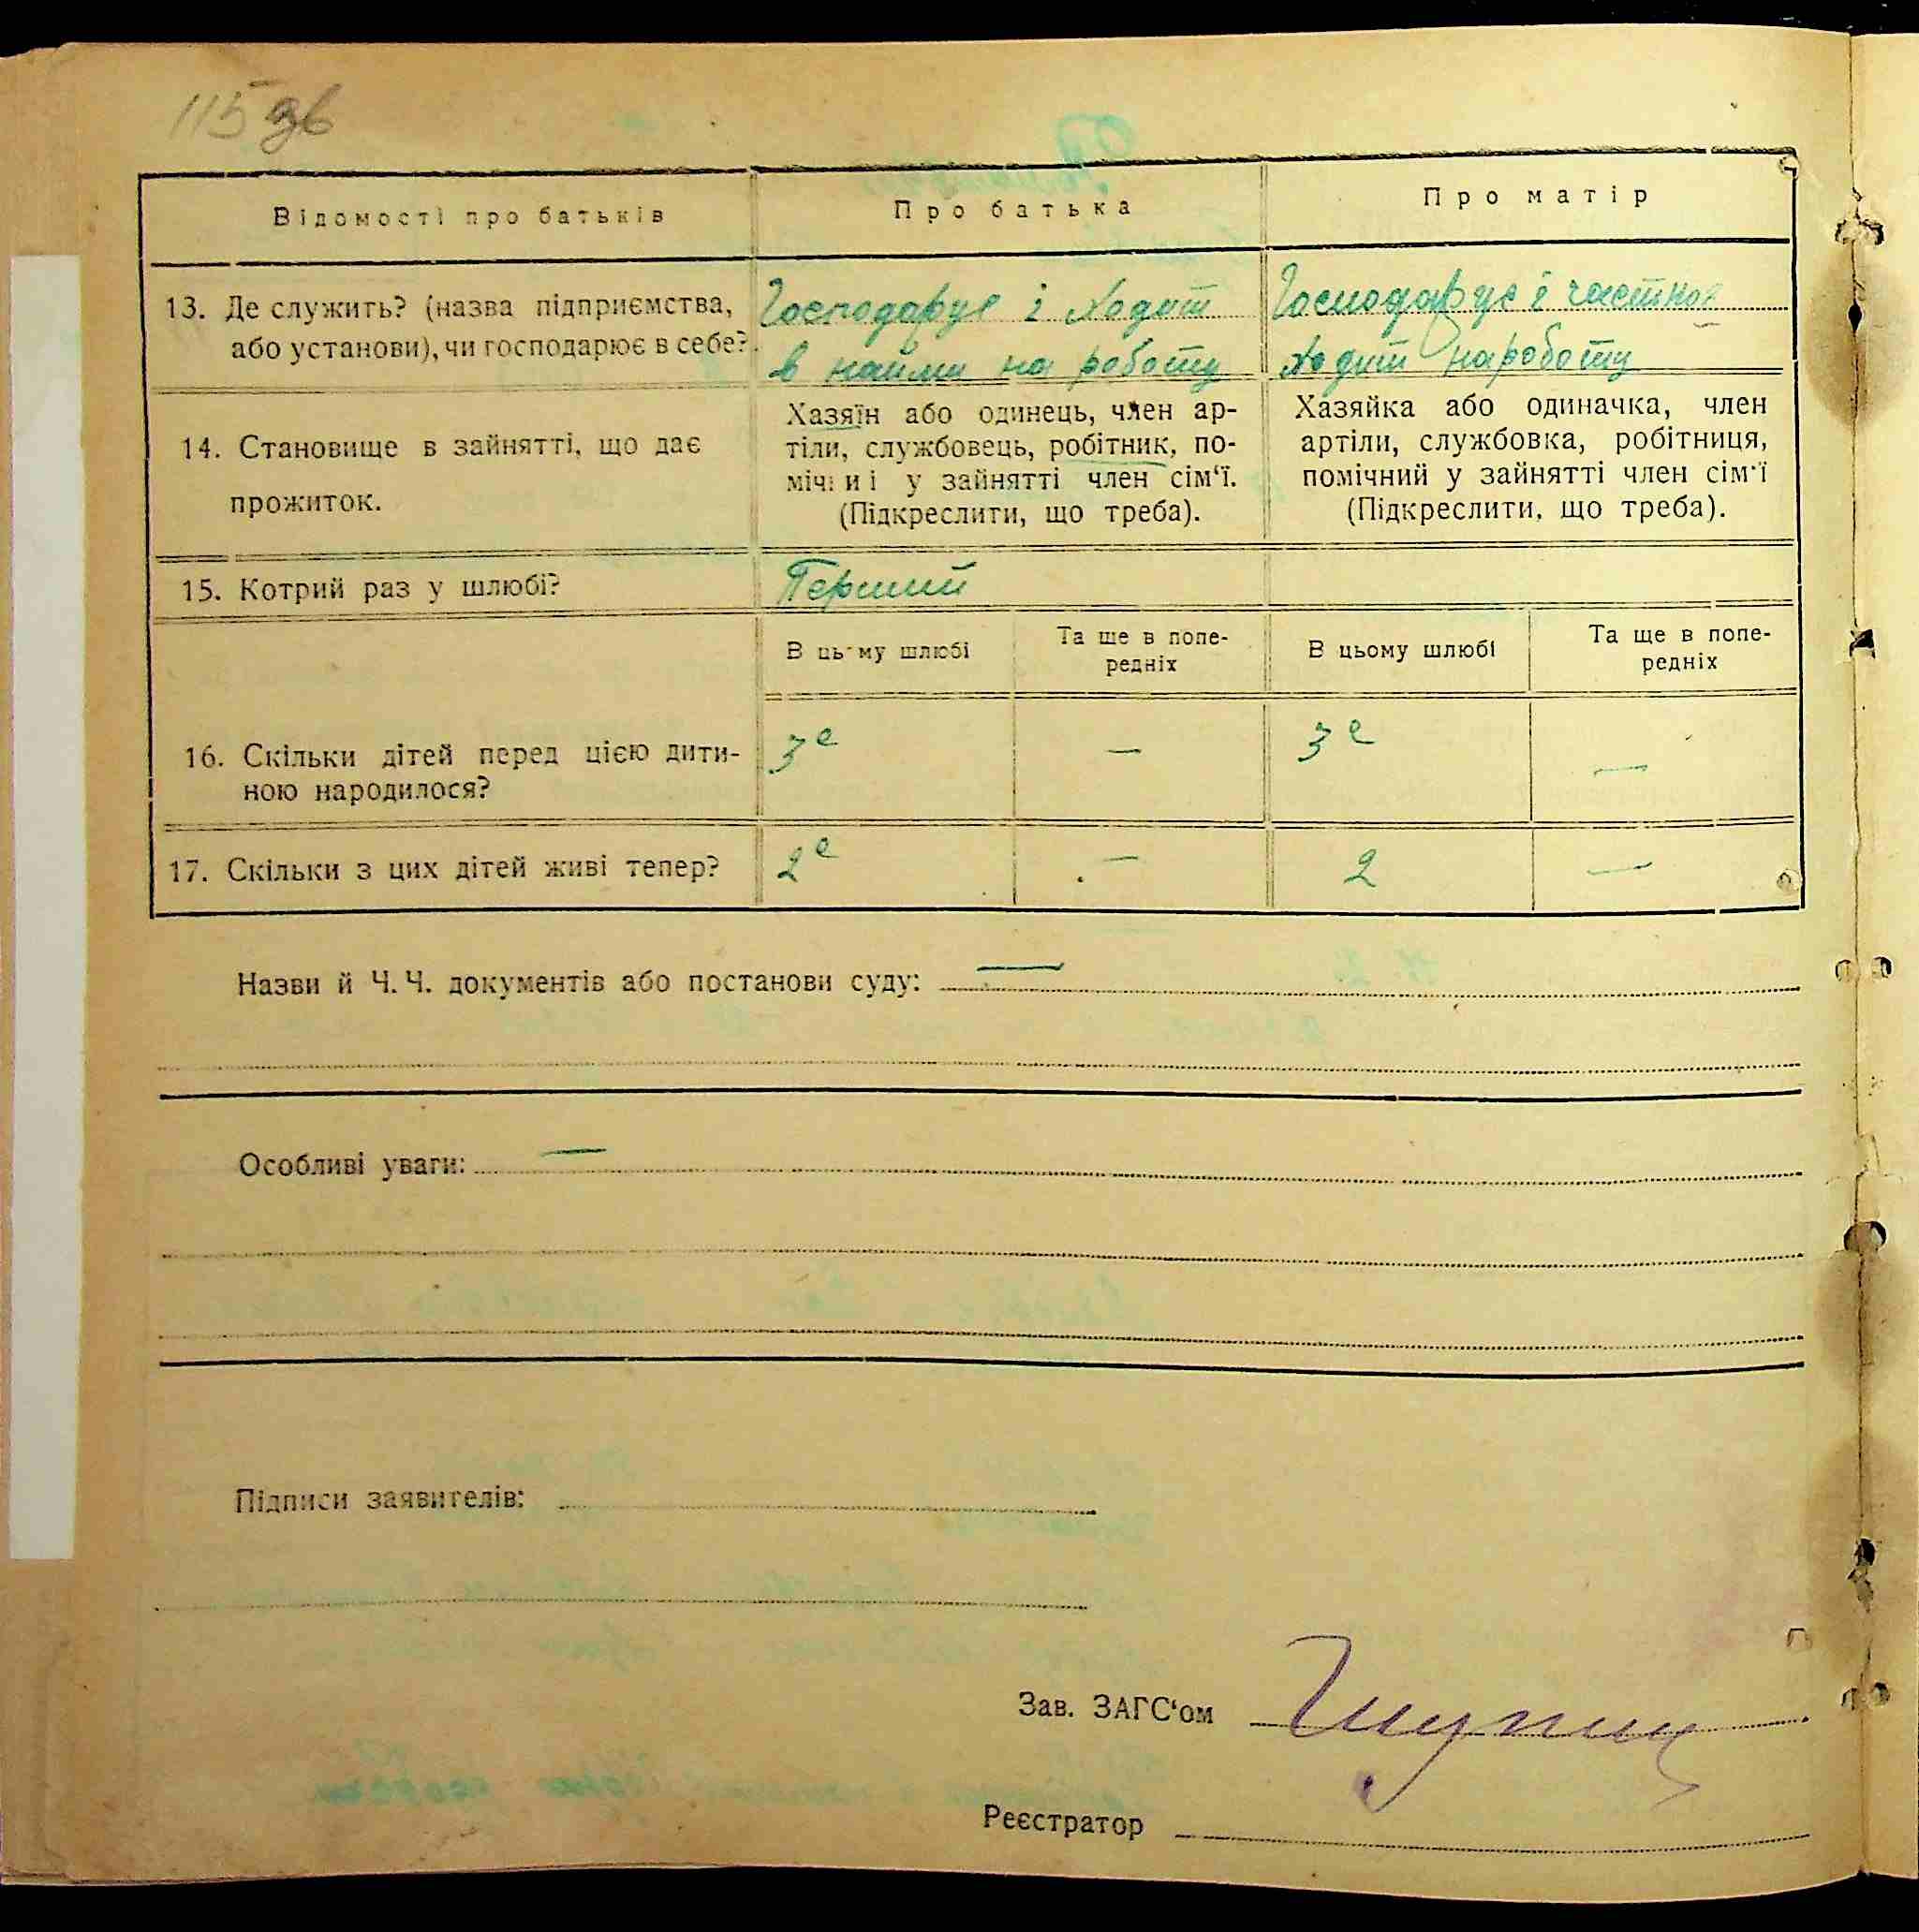 115 зв
Відомості про батьків
Про батька
Про матір
13. Де служить? (назва підприємства,
або установи), чи господарює в себе?
Господарує і ходит
в найми на роботу
Господарує і частно
ходит на роботу
14. Становище в зайнятті, що дає
прожиток.
Хазяїн або одинець, член ар-
тіли, службовець, робітник, по-
мічний у зайнятті член сім'ї.
(Підкреслити, що треба).
Хазяйка або одиначка, член
артіли, службовка, робітниця,
помічний у зайнятті член сім'ї
(Підкреслити, що треба).
15. Котрий раз у шлюбі?
Перший
В цьому шлюбі
Та ще в попе-
редніх
В цьому шлюбі
Та ще в попе-
редніх
16. Скільки дітей перед цією дити-
ною народилося?
3е
—
3е
—
17. Скільки з цих дітей живі тепер?
2е
—
2
—
Назви й Ч. Ч. документів або постанови суду: —
Особливі уваги: —
Підписи заявителів:
Зав. ЗАГС'ом
Реєстратор